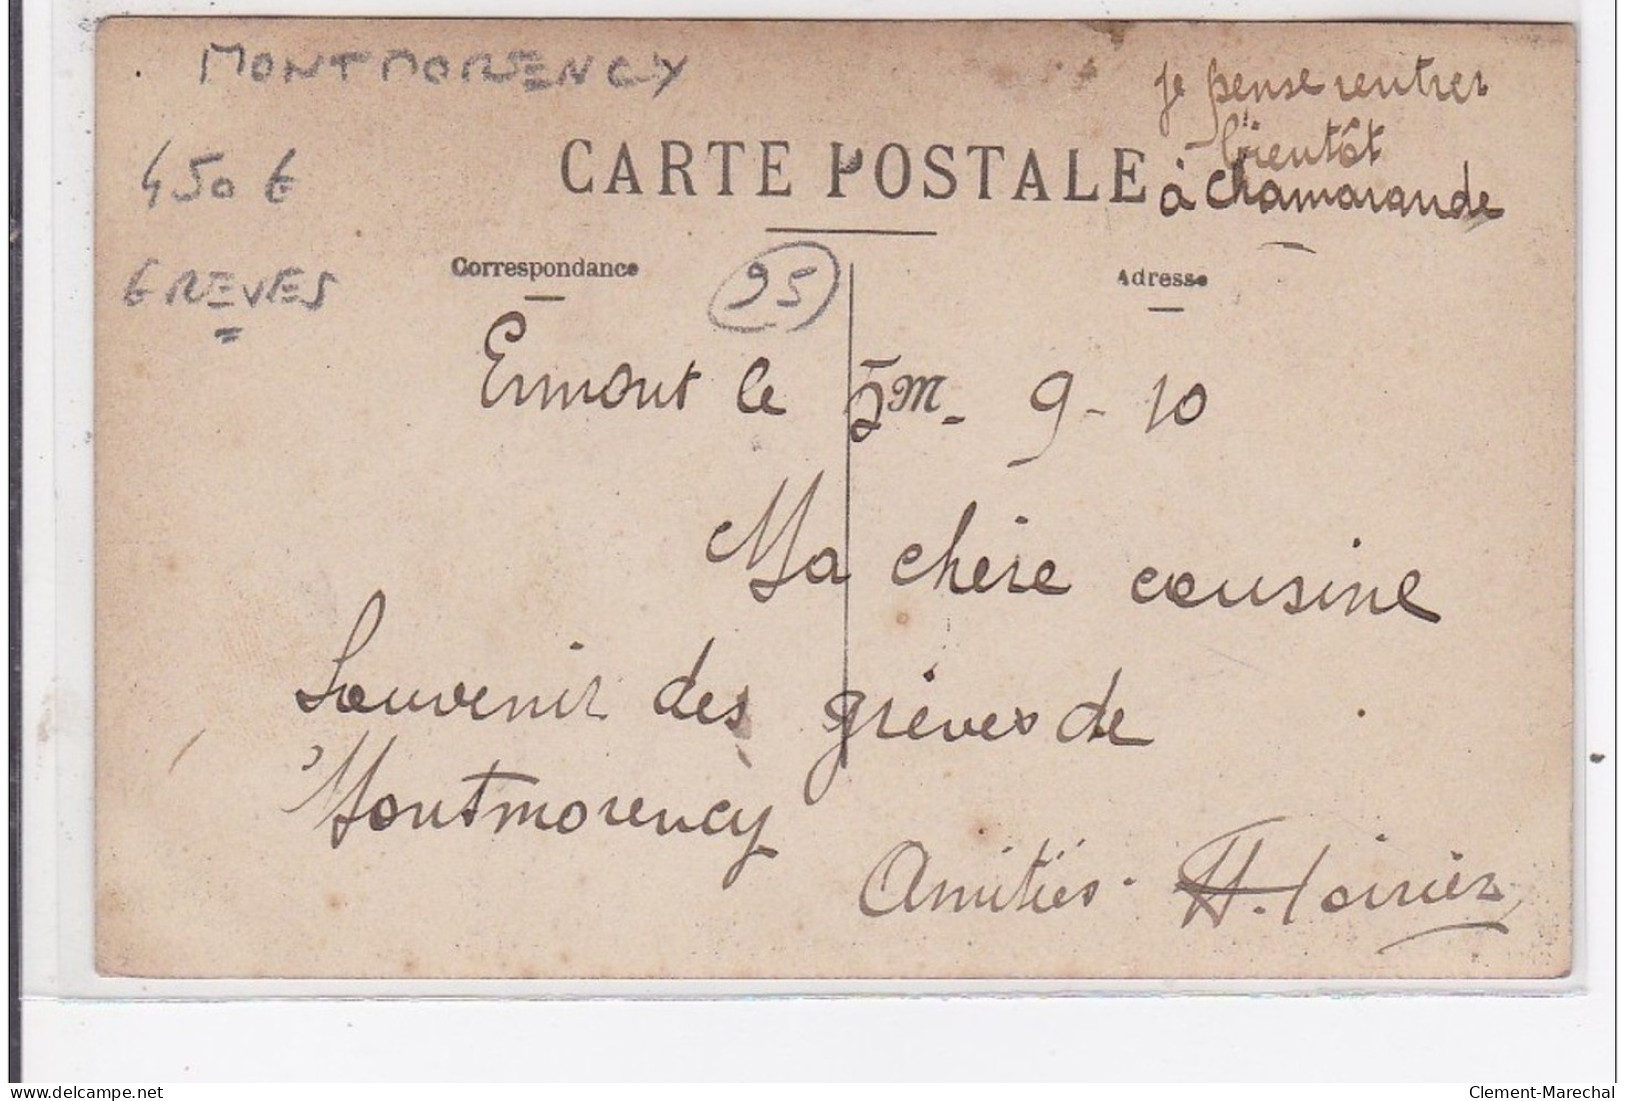 MONTMORENCY
je pense rentrer
bientôt
à Chamarande
450 €
CARTE POSTALE
GREVES
Correspondance
95
Adresse
Ermont le 5m. 9-10
Ma chère cousine
Souvenir des grèves de
Montmorency
Amitiés. H.
Clement-Marechal
delcampe.net